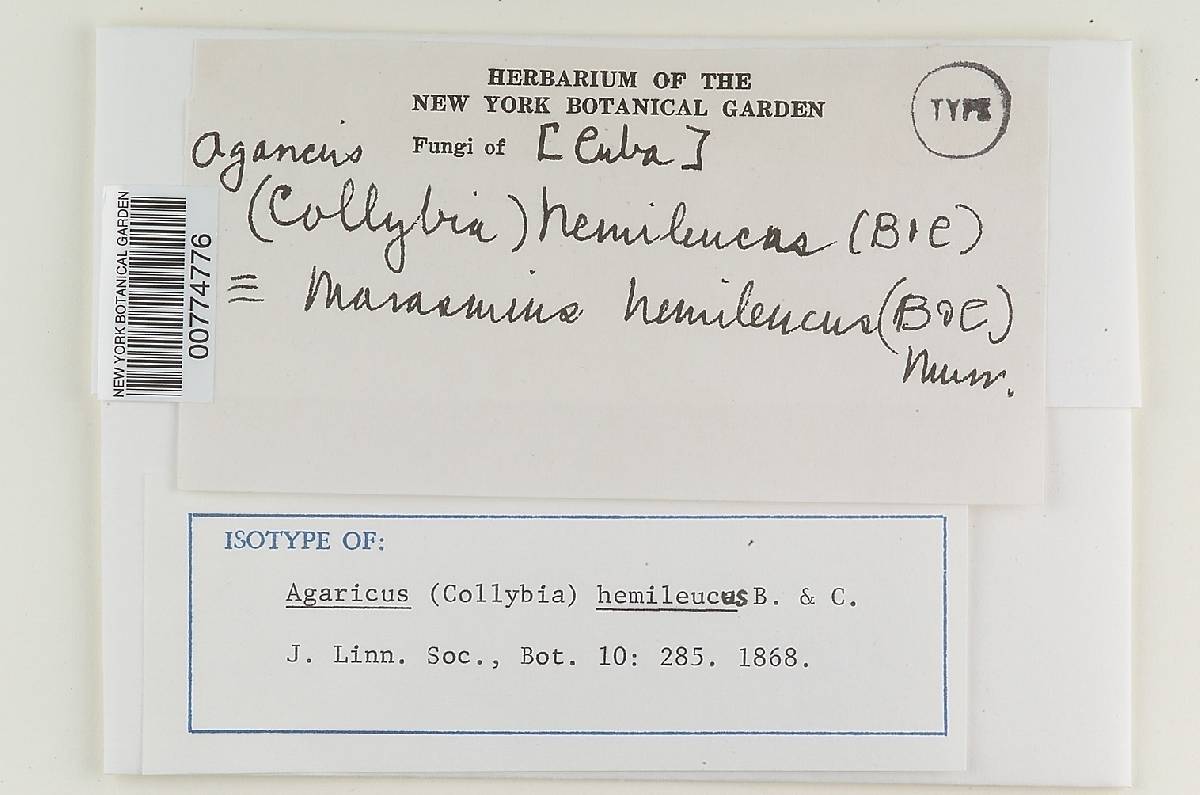 HERBARIUM OF THE
NEW YORK BOTANICAL GARDEN
TYPE
Agaricus Fungi of [Cuba]
(Collybia) hemileucus (B & C)
≡ Marasmius hemileucus (B & C)
Murr.
NEW YORK BOTANICAL GARDEN
00774776
ISOTYPE OF:
Agaricus (Collybia) hemileucus B. & C.
J. Linn. Soc., Bot. 10: 285. 1868.